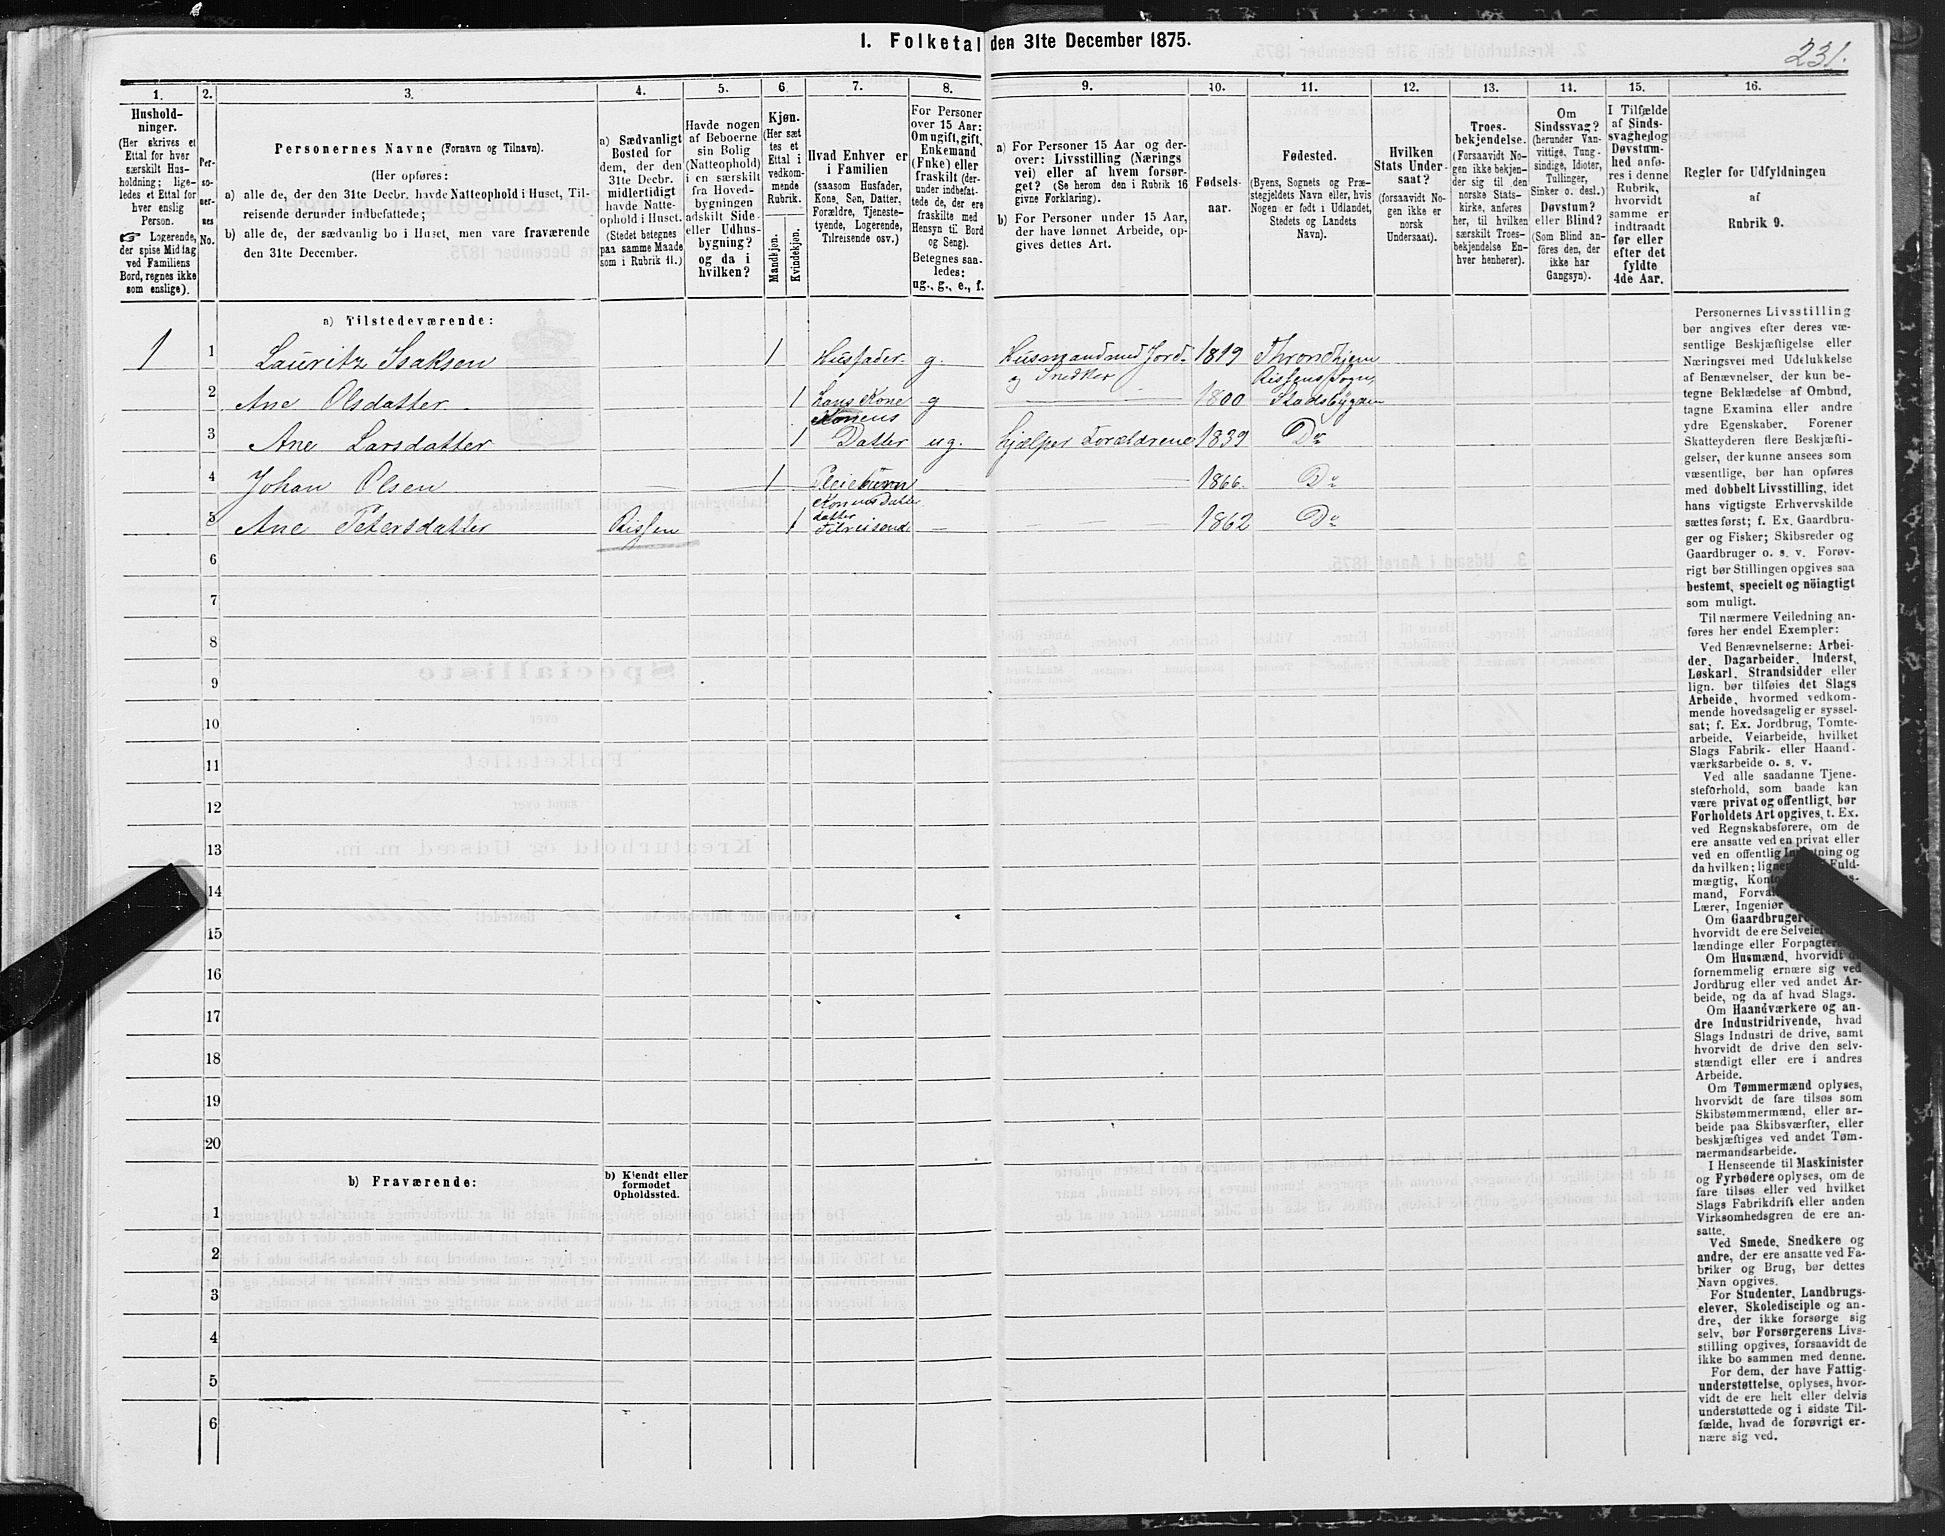 231.
1. Folketal den 31te December 1875.
1. 2. 3. 4. 5. 6. 7. 8. 9. 10. 11. 12. 13. 14. 15. 16.
Hushold-
ninger.
(Her skrives et
Ettal for hver
særskilt Hus-
holdning; lige-
ledes et Ettal for
hver enslig
Person.
☞ Logerende,
der spise Middag
ved Familiens
Bord, regnes ikke
som enslige).
Per-
so-
ner-
nes
No.
Personernes Navne (Fornavn og Tilnavn).
(Her opføres:
a) alle de, der den 31te Decbr. havde Natteophold i Huset, Til-
reisende derunder indbefattede;
b) alle de, der sædvanlig bo i Huset, men vare fraværende
den 31te December.
a) Sædvanligt
Bosted for
dem, der den
31te Decbr.
midlertidigt
havde Natte-
ophold i Huset.
(Stedet betegnes
paa samme Maade
som i Rubrik 11.)
Havde nogen
af Beboerne
sin Bolig
(Natteophold)
i en særskilt
fra Hoved-
bygningen
adskilt Side-
eller Udhus-
bygning?
og da i
hvilken?
Kjøn.
(Her sæt
tes et
Ettal i
vedkom-
mende
Rubrik.
Mandkjøn.
Kvindekjøn.
Hvad Enhver er
i Familien
(saasom Husfader,
Kone, Søn, Datter,
Forældre, Tjeneste-
tyende, Logerende,
Tilreisende osv.)
For Personer
over 15 Aar:
Om ugift, gift,
Enkemand
(Fnke) eller
fraskilt (der-
under indbefat-
tede de, der ere
fraskilte med
Hensyn til Bord
og Seng).
Betegnes saa-
ledes:
ug., g., e., f.
a) For Personer 15 Aar og der-
over: Livsstilling (Nærings
vei) eller af hvem forsør-
get? (Se herom den i Rubrik 16
givne Forklaring).
b) For Personer under 15 Aar,
der have lønnet Arbeide, op-
gives dettes Art.
Fødsels-
aar.
Fødested.
(Byens, Sognets og Præ-
stegjeldets Navn eller, hvis
Nogen er født i Udlandet,
Stedets og Landets
Navn).
Hvilken
Stats Under-
saat?
(forsaavidt No-
gen ikke er
norsk
Undersaat).
Troes-
bekjendelse.
(Forsaavidt No-
gen ikke bekjen-
der sig til den
norske Stats-
kirke, anføres
her, til hvilken
særskilt Troes-
bekjendelse En-
hver henhører).
Om
Sindssvag?
(herunder Van-
vittige, Tung-
sindige, Idioter,
Tullinger,
Sinker o. desl.)
Døvstum?
eller Blind?
(Som Blind an-
føres den, der
ikke har
Gangsyn).
I Tilfælde
af Sinds-
svaghed og
Døvstum-
hed anfø-
res i denne
Rubrik,
hvorvidt
samme er
indtraadt
før eller
efter det
fyldte
4de Aar.
Regler for Udfyldningen
af
Rubrik 9.
a) Tilstedeværende:
1 1 Lauritz Isaksen 1 Husfader g. Husmand med Jord 1819 Throndhjem
og Snedker
Rissens Sogn,
2 Ane Olsdatter 1 hans Kone g 1800 Stadsbygden
Konens
3 Ane Larsdatter 1 Datter ug. hjælper Forældrene 1839 Do
4 Johan Olsen 1 Pleiebørn 1866. Do
Konens Datter
datter
5 Ane Petersdatter Rissen 1 Tilreisend 1862 Do
6
7
8
9
10
11
12
13
14
15
16
17
18
19
20
b) Fraværende:
b) Kjendt eller
formodet
Opholdssted.
1
2
3
4
5
6
Personernes Livsstilling
bør angives efter deres væ-
sentlige Beskjæftigelse eller
Næringsvei med Udelukkelse
af Benævnelser, der kun be-
tegne Beklædelse af Ombud,
tagne Examina eller andre
ydre Egenskaber. Forener
Skatteyderen flere Beskjæfti-
gelser, der kunne ansees som
væsentlige, bør han opføres
med dobbelt Livsstilling, idet
hans vigtigste Erhvervskilde
sættes først; f. Ex. Gaardbru-
ger og Fisker; Skibsreder og
Gaardbruger o. s. v. Forøv-
rigt bør Stillingen opgives saa
bestemt, specielt og nöiagtigt
som muligt.
Til nærmere Veiledning an-
føres her endel Exempler:
Ved Benævnelserne: Arbei-
der, Dagarbeider, Inderst,
Løskarl, Strandsidder eller
lign. bør tilføies det Slags
Arbeide, hvormed vedkom-
mende hovedsagelig er syssel-
sat; f. Ex. Jordbrug, Tomte-
arbeide, Veiarbeide, hvilket
Slags Fabrik- eller Haand-
værksarbeide o. s. v.
Ved alle saadanne Tjene-
steforhold, som baade kan
være privat og offentligt, bør
Forholdets Art opgives, t. Ex.
ved Regnskabsførere, om de
ere ansatte ved en privat eller
ved en offentlig Indretning og
da hvilken; Fuld-
mægtig,
mand,
Lærer, Ingeniør
Om Gaardbrugere
hvorvidt de ere
lændinge eller
Om Husmænd, hvorvidt
fornemmelig ernære sig ved
Jordbrug eller ved andet Ar-
beide, og da af hvad Slags.
Om Haandværkere og an-
dre Industridrivende, hvad
Slags Industri de drive, samt
hvorvidt de drive den selv-
stændigt eller ere i andres
Arbeide.
Om Tømmermænd oplyses,
hvorvidt de fare tilsøs som
Skibstømmermænd, eller ar-
beide paa Skibsværfter, eller
beskjæftiges ved andet Tøm-
mermandsarbeide.
I Henseende til Maskinister
og Fyrbødere oplyses, om de
fare tilsøs eller ved hvilket
Slags Fabrikdrift eller anden
Virksomhedsgren de ere an-
satte.
Ved Smede, Snedkere og
andre, der ere ansatte ved Fa-
briker og Brug, bør dettes
Navn opgives.
For Studenter, Landbrugs-
elever, Skoledisciple og an-
dre, der ikke forsørge sig
selv, bør Forsørgerens Livs-
stilling opgives, forsaavidt de
ikke bo sammen med denne.
For dem, der have Fattig-
understøttelse, oplyses, hvor-
vidt de ere helt eller delvis
understøttede og i sidste Til-
fælde, hvad de forøvrigt er-
nære sig ved.